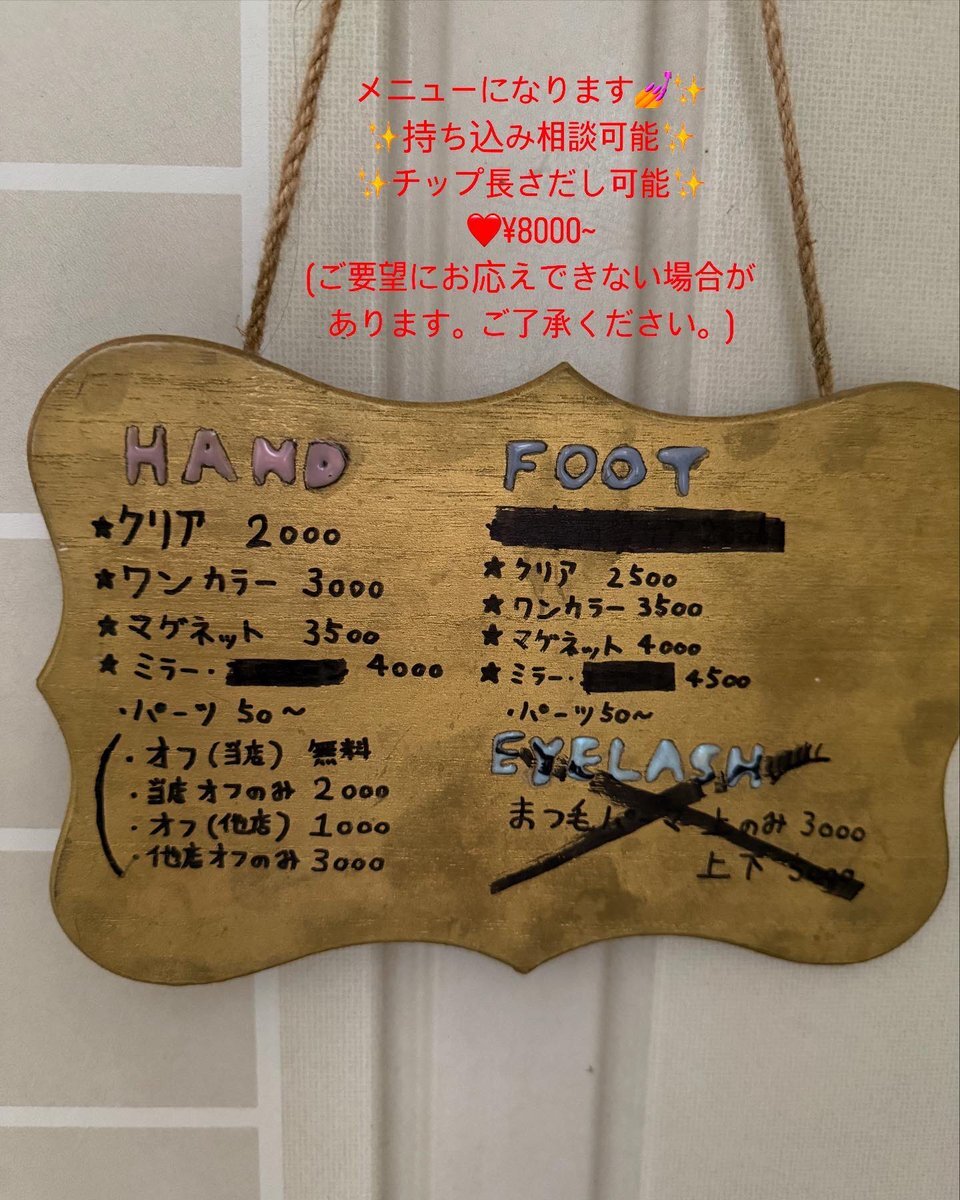 メニューになります💅✨
✨持ち込み相談可能✨
✨チップ長さだし可能✨
❤️¥8000~
(ご要望にお応えできない場合が
あります。ご了承ください。)
HAND
★クリア 2000
★ワンカラー 3000
★マグネット 3500
★ミラー・ 4000
・パーツ 50～
・オフ(当店) 無料
・当店オフのみ 2000
・オフ(他店) 1000
・他店オフのみ 3000
FOOT
★クリア 2500
★ワンカラー 3500
★マグネット 4000
★ミラー・ 4500
・パーツ50～
EYELASH
まつ毛パーマ 上のみ 3000
上下